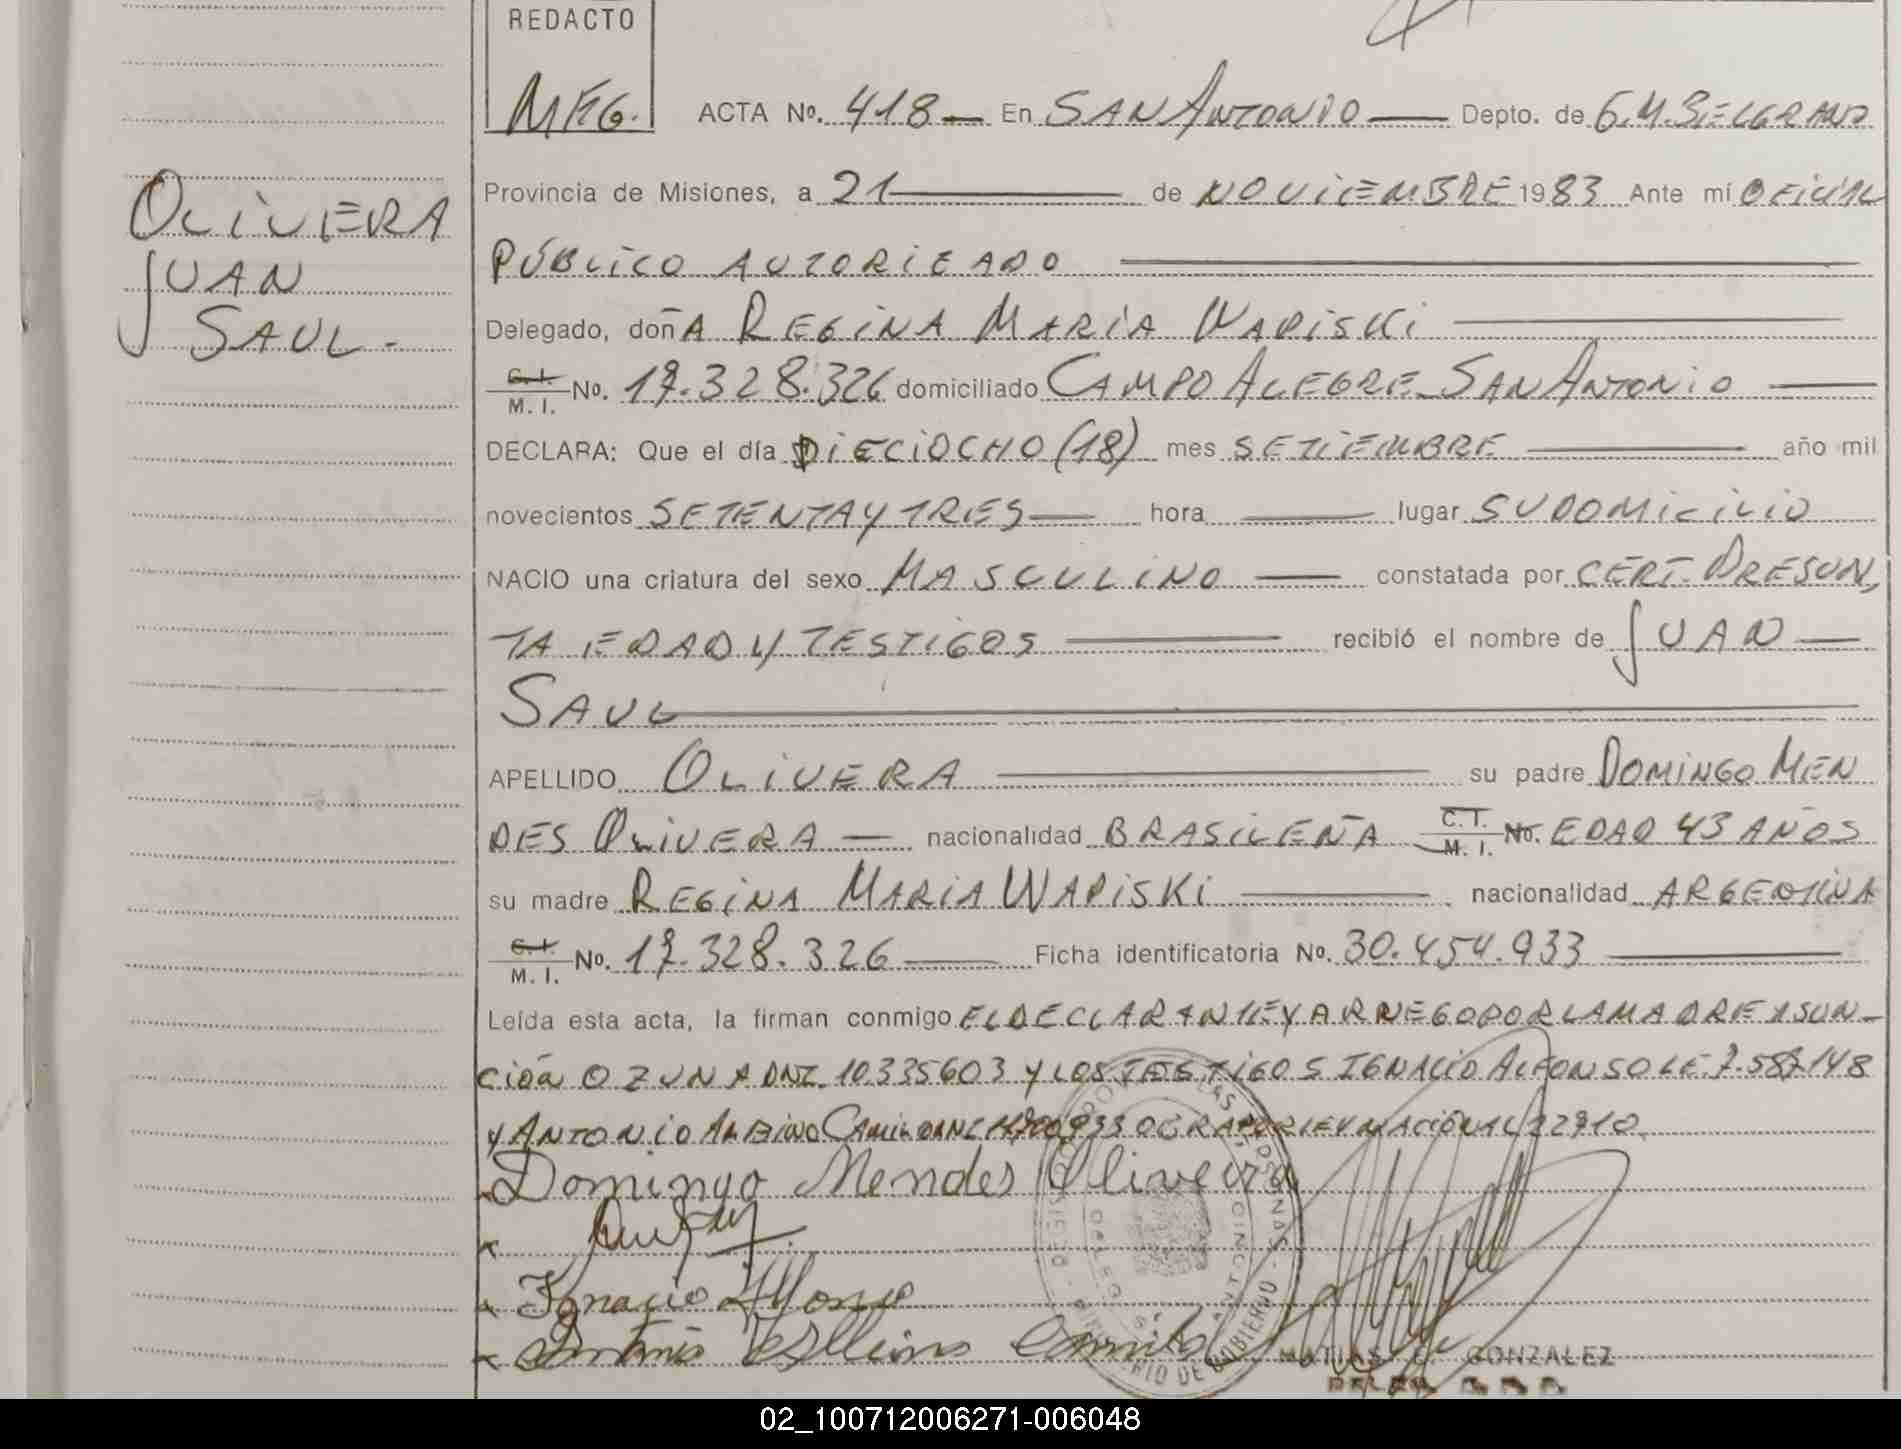 REDACTO
MFG.
ACTA No. 418 En SAN ANTONIO Depto. de G.M. BELGRANO
OLIVERA
JUAN
SAUL.
Provincia de Misiones, a 21 de NOVIEMBRE 1983 Ante mí OFICIAL
PÚBLICO AUTORIZADO
Delegado, doñA REGINA MARIA WAPISKI
C. I.
M. I. No. 17.328.326 domiciliado CAMPO ALEGRE SAN ANTONIO
DECLARA: Que el día DIECIOCHO (18) mes SETIEMBRE año mil
novecientos SETENTA Y TRES hora lugar SU DOMICILIO
NACIO una criatura del sexo MASCULINO constatada por CERT. PRESUN,
TA EDAD Y TESTIGOS recibió el nombre de JUAN
SAUL
APELLIDO OLIVERA su padre DOMINGO MEN
DES OLIVERA nacionalidad BRASILEÑA C. I. M. I. No. EDAD 43 AÑOS
su madre REGINA MARIA WAPISKI nacionalidad ARGENTINA
C. I.
M. I. No. 17.328.326 Ficha identificatoria No. 30.454.933
Leída esta acta, la firman conmigo EL DECLARANTE Y A RRUEGO POR LA MADRE ASUN-
CIÓN OZUNA DNI. 10335603 Y LOS TESTIGOS IGNACIO ALFONSO LE. 7.587.148
Y ANTONIO ALBINO CAMILO 22910.
Domingo Mendes Oliveira
Ignacio Alfonso
Antonio Albino Camilo
MATIAS GONZALEZ
02_100712006271-006048